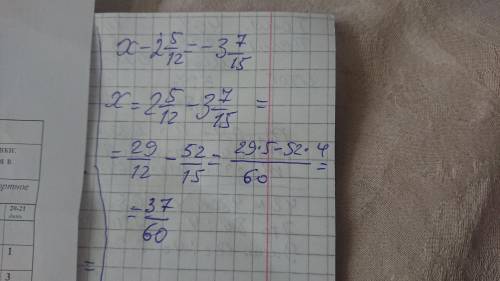 x - 2 5/12 = -3 7/15
x = 2 5/12 - 3 7/15 =
= 29/12 - 52/15 = (29·5-52·4)/60 =
= 37/60
вки.
я в
ртное
20-21
день
1
3
=